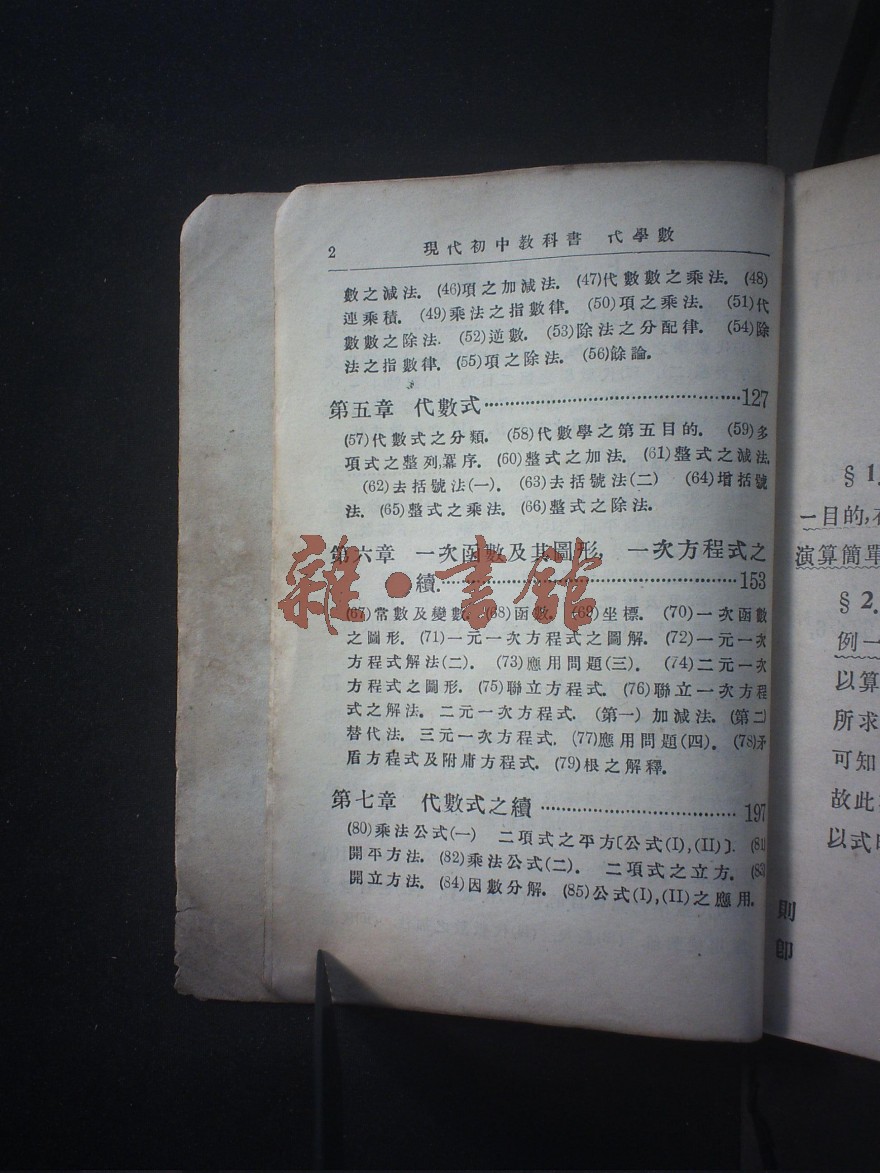 2 現代初中教科書 代學數
數之減法. (46)項之加減法. (47)代數數之乘法. (48)
連乘積. (49)乘法之指數律. (50)項之乘法. (51)代
數數之除法. (52)逆數. (53)除法之分配律. (54)除
法之指數律. (55)項之除法. (56)餘論.
第五章 代數式……………………………………127
(57)代數式之分類. (58)代數學之第五目的. (59)多
項式之整列,冪序. (60)整式之加法. (61)整式之減法.
(62)去括號法(一). (63)去括號法(二) (64)增括號
法. (65)整式之乘法. (66)整式之除法.
第六章 一次函數及其圖形, 一次方程式之
續……………………………………153
(67)常數及變數. (68)函數. (69)坐標. (70)一次函數
之圖形. (71)一元一次方程式之圖解. (72)一元一次
方程式解法(二). (73)應用問題(三). (74)二元一次
方程式之圖形. (75)聯立方程式. (76)聯立一次方程
式之解法. 二元一次方程式. (第一)加減法. (第二)
替代法. 三元一次方程式. (77)應用問題(四). (78)矛
盾方程式及附庸方程式. (79)根之解釋.
第七章 代數式之續……………………………197
(80)乘法公式(一) 二項式之平方〔公式(I),(II)〕. (81)
開平方法. (82)乘法公式(二). 二項式之立方. (83)
開立方法. (84)因數分解. (85)公式(I),(II)之應用.
雜·書館
§ 1.
一目的,在
演算簡單
§ 2.
例一
以算
所求
可知
故此
以式
則
卽